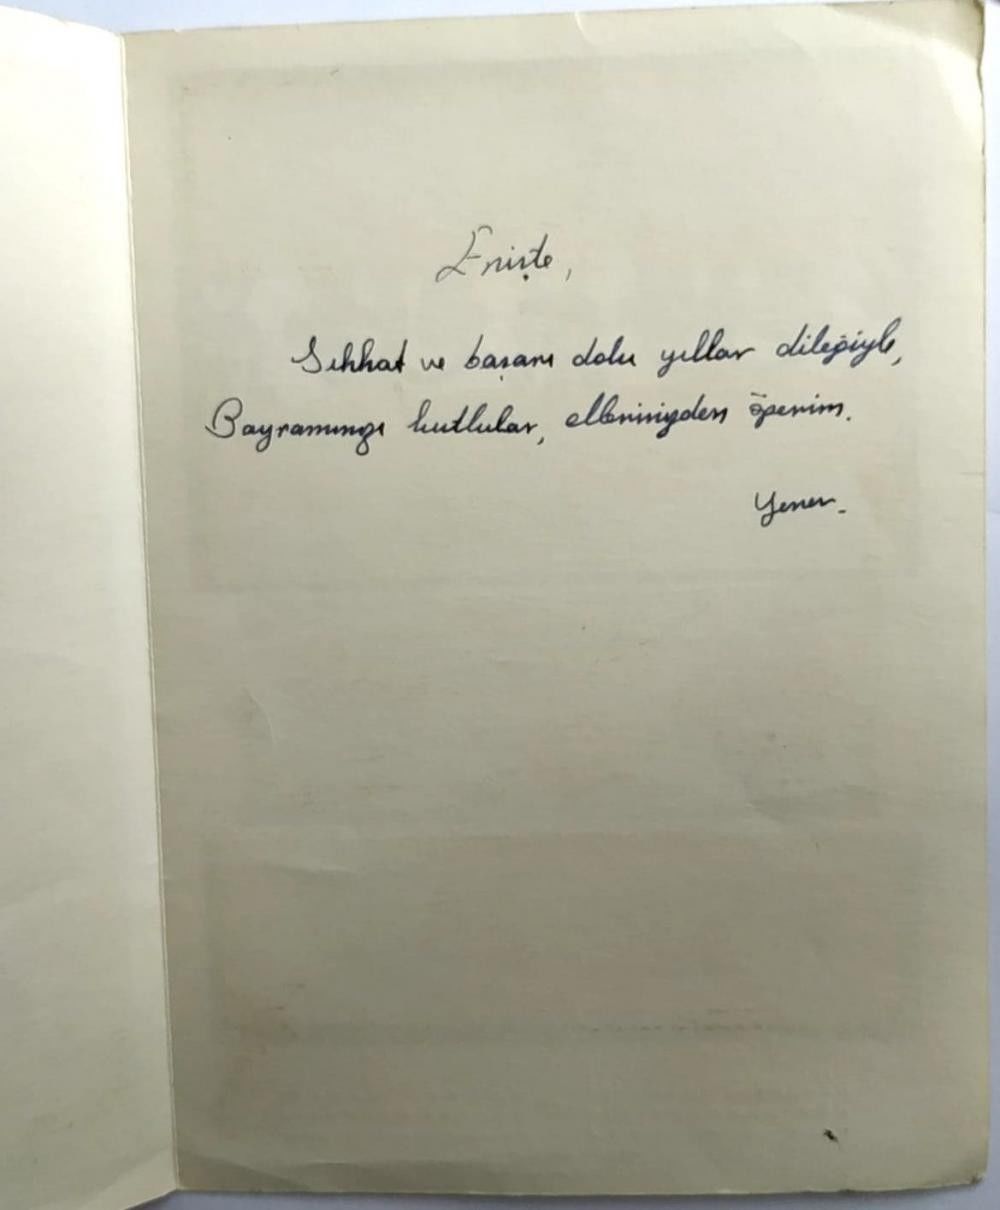 Enişte,
Sıhhat ve başarı dolu yıllar dileğiyle,
Bayramınızı kutlular, ellerinizden öperim.
Yener.